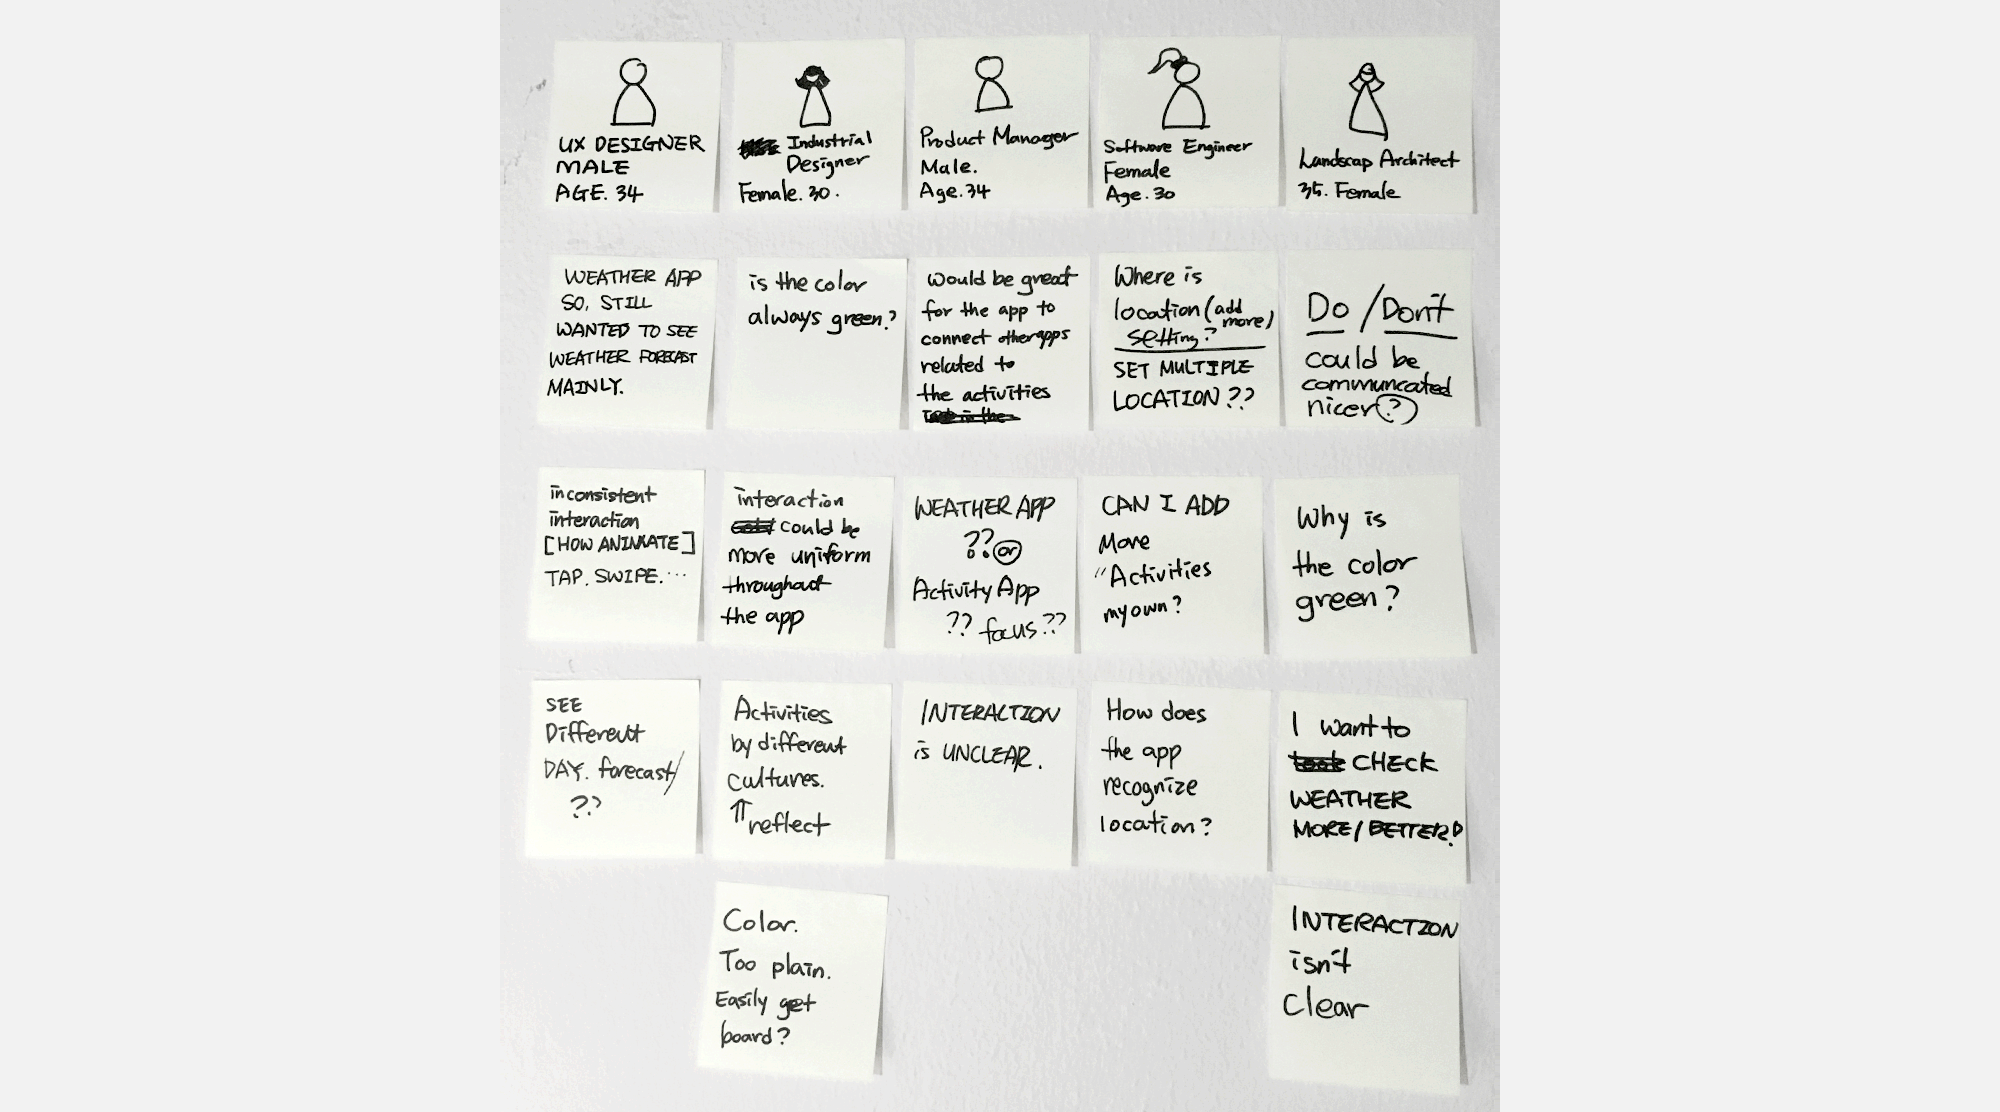 UX DESIGNER
MALE
AGE. 34
Industrial
Designer
Female. 30.
Product Manager
Male.
Age. 34
Software Engineer
Female
Age. 30
Landscap Architect
35. Female
WEATHER APP
SO, STILL
WANTED TO SEE
WEATHER FORECAST
MAINLY.
is the color
always green?
Would be great
for the app to
connect other apps
related to
the activities
Where is
location (add
more)
setting?
SET MULTIPLE
LOCATION??
Do / Don't
could be
communcated
nicer ?
inconsistent
interaction
[HOW ANIMATE]
TAP. SWIPE. ...
interaction
could be
more uniform
throughout
the app
WEATHER APP
?? or
Activity App
?? focus ??
CAN I ADD
More
"Activities
my own?
Why is
the color
green?
SEE
Different
DAY. forecast/
??
Activities
by different
cultures.
⇑ reflect
INTERACTION
is UNCLEAR.
How does
the app
recognize
location?
I want to
CHECK
WEATHER
MORE/BETTER?
Color.
Too plain.
Easily get
board?
INTERACTION
isn't
Clear